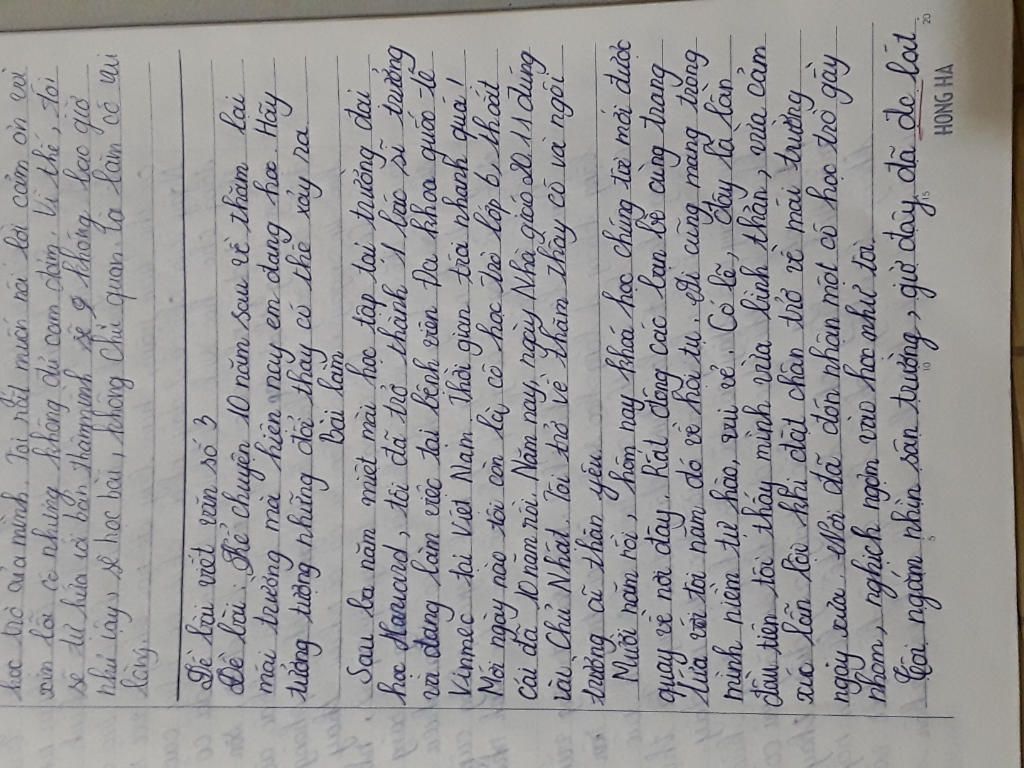 học trò của mình. Tôi rất muốn nói lời cảm ơn và
xin lỗi cô nhưng không đủ can đảm. Vì thế, tôi
sẽ tự hứa với bản thân mình sẽ không bao giờ
như vậy, sẽ học bài, không chủ quan
lòng.
Đề bài viết văn số 3
Đề bài: Kể chuyện 10 năm sau về thăm lại
mái trường mà hiện nay em đang học. Hãy
tưởng tượng những đổi thay có thể xảy ra
Bài làm
Sau ba năm miệt mài học tập tại trường đại
học Havard, tôi đã trở thành 1 bác sĩ trưởng
và đang làm việc tại bệnh viện Đa khoa quốc tế
Vinmec tại Việt Nam. Thời gian trôi nhanh quá!
Mới ngày nào tôi còn là cô học trò lớp 6, thoắt
cái đã 10 năm rồi. Năm nay, ngày Nhà giáo 20-11 đúng
vào Chủ Nhật. Tôi trở về thăm thầy cô và ngôi
trường cũ thân yêu.
Mười năm rồi, hôm nay khoá học chúng tôi mới được
quay về nơi đây. Rất đông các bạn bè cùng trang
lứa với tôi năm đó về hội tụ. Ai cũng mang trong
mình niềm tự hào, vui vẻ. Có lẽ, đây là lần
đầu tiên tôi thấy mình vừa bình thản, vừa cảm
xúc lẫn lội khi đặt chân trở về mái trường
ngày xưa. Nơi đã đón nhận một cô học trò gầy
nhom, nghịch ngợm vào học như tôi.
Tôi ngắm nhìn sân trường, giờ đây, đã đc lát
5
10
15
20
HONG HA